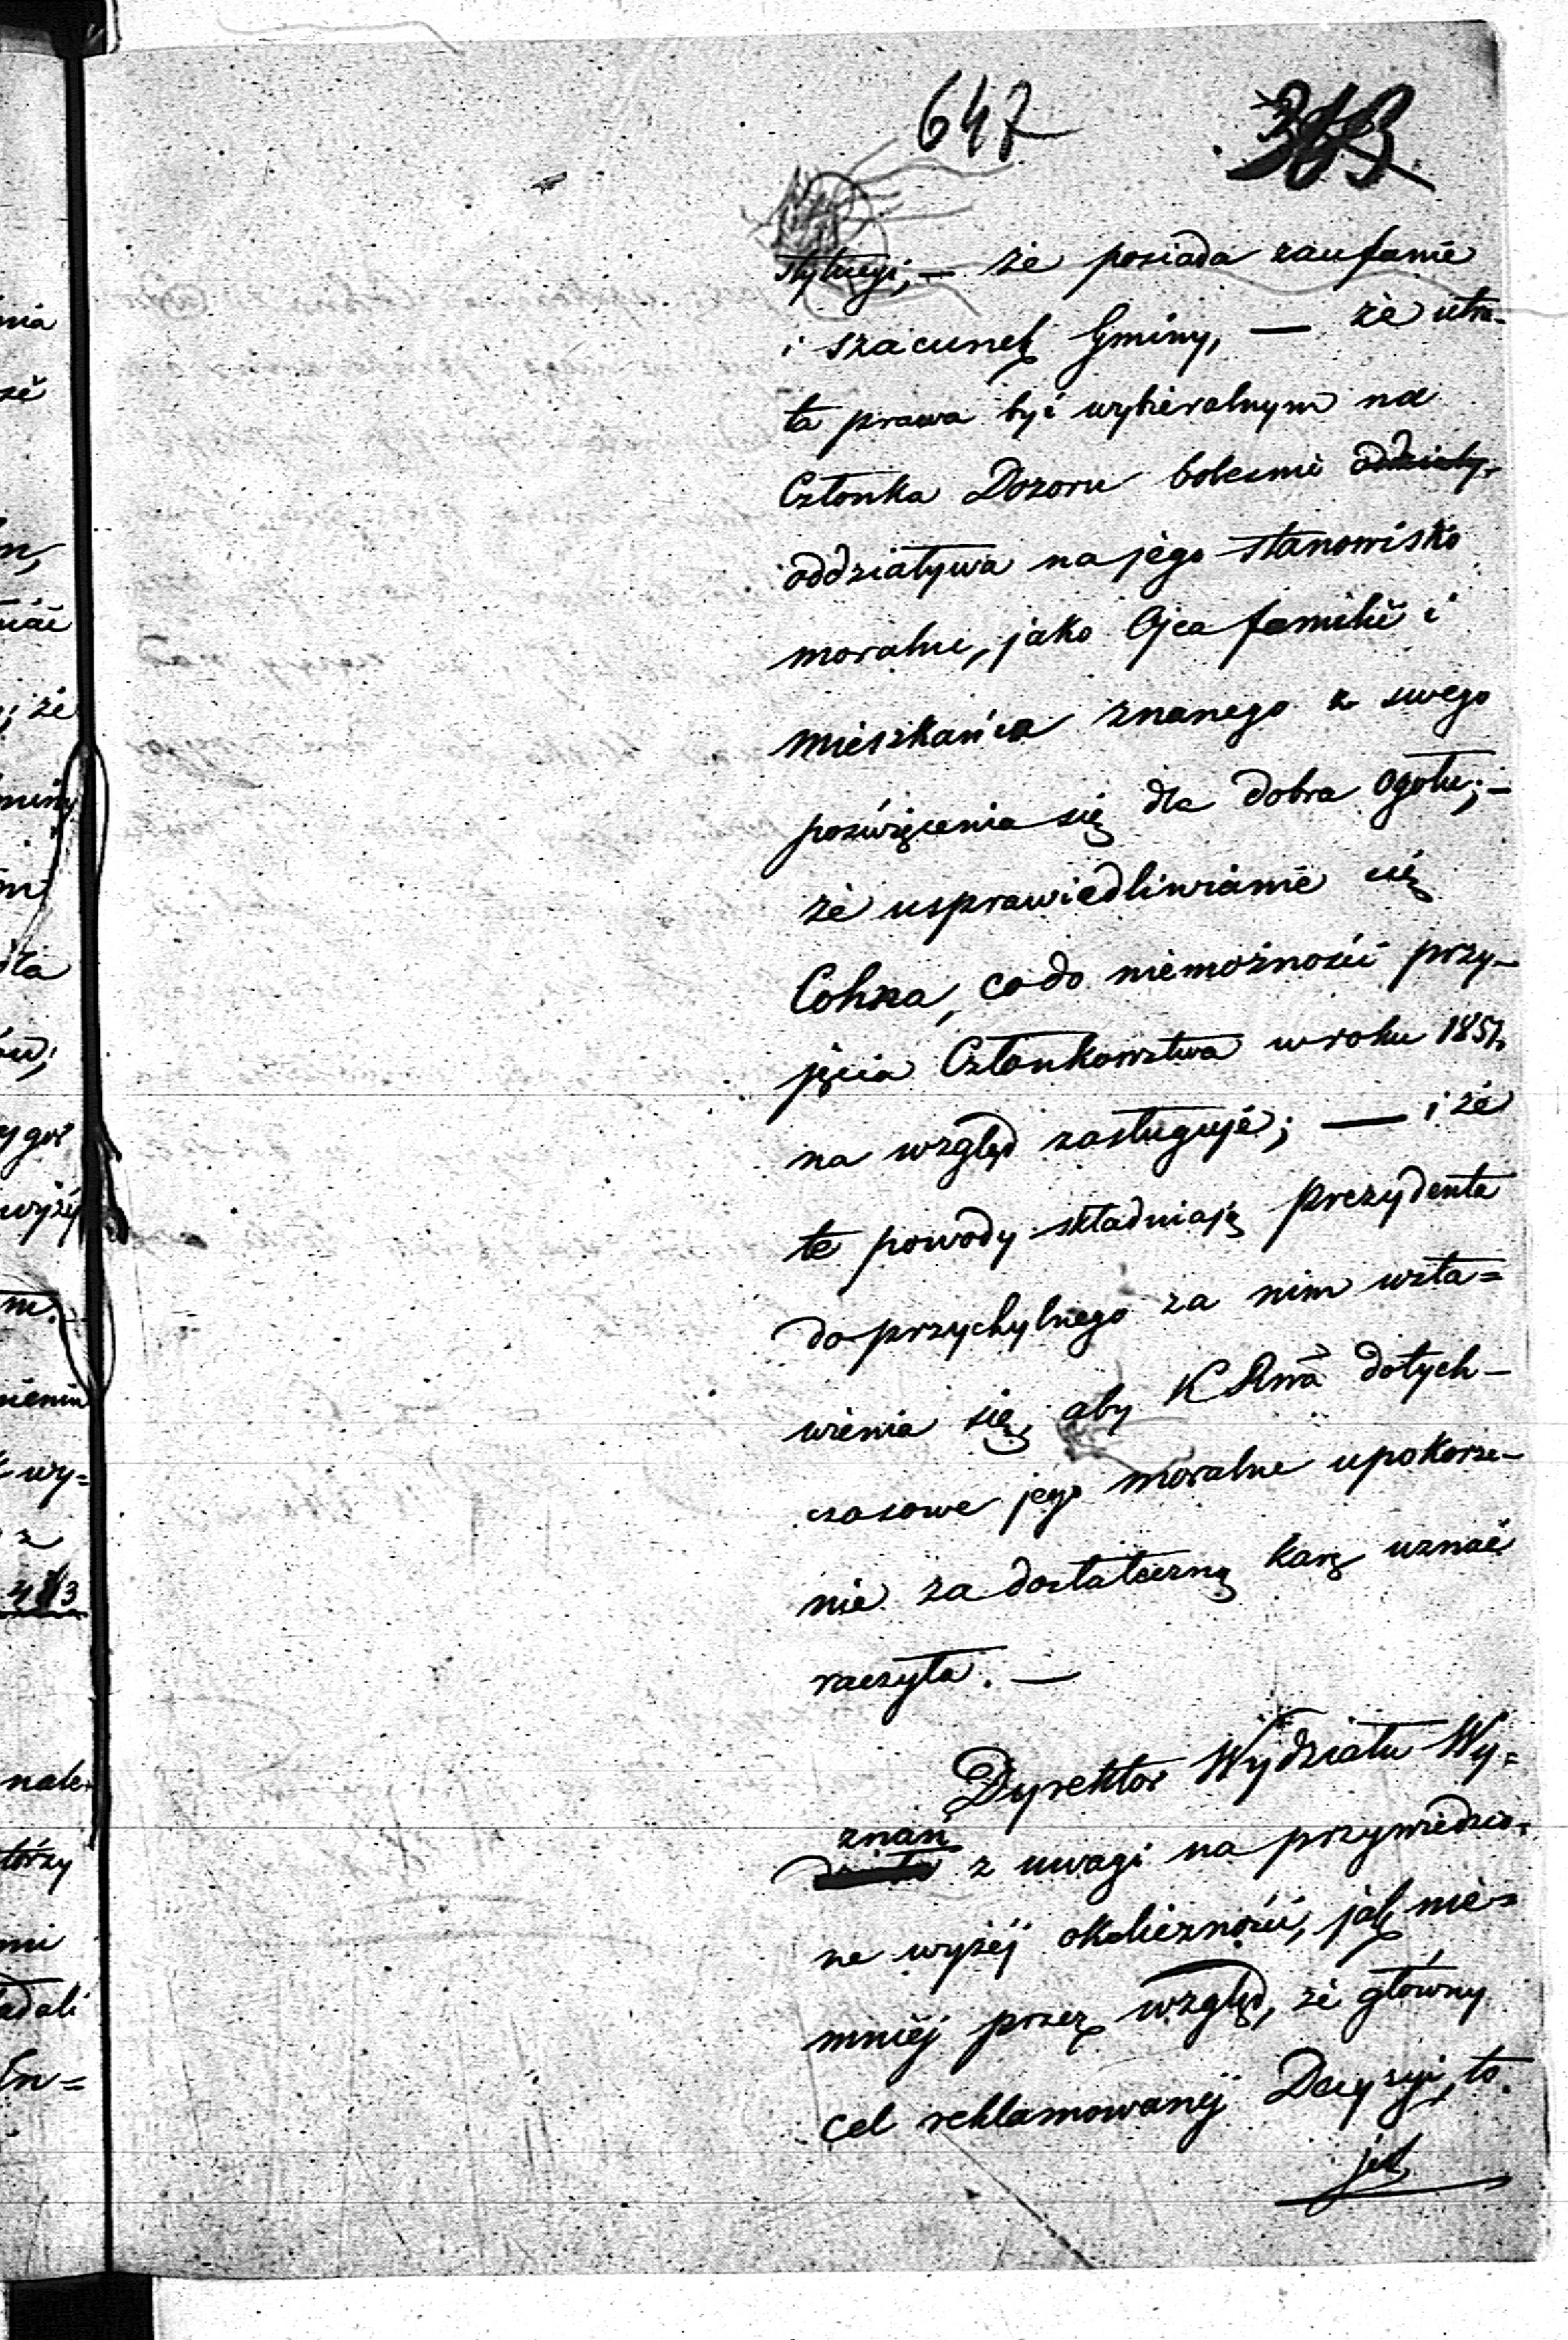 647
stytucyi, — że posiada zaufanie
i szacunek Gminy, — że utra-
ta prawa być wybieralnym na
Członka Dozoru boleśnie oddziały-
oddziaływa na jego stanowisko
moralne, jako Ojca familii i
mieszkańca znanego z swego
poświęcenia się dla dobra Ogółu; —
że usprawiedliwianie się
Cohna, co do niemożności przy-
jęcia Członkowstwa w roku 1857,
na wzgląd zasługuje; — i że
te powody skłaniają prezydenta
do przychylnego za nim wsta=
wienia się, aby K Rwa dotych-
czasowe jego moralne upokorze-
nie za dostateczną karę uznać
raczyła. —
Dyrektor Wydziału Wy=
znań
z uwagi na przywiedzio-
ne wyżej okoliczności, jak nie=
mniej przez wzgląd, że główny
cel reklamowanej Decyzyi, to
jest,
nia
że
n,
; że
miny
ła
wyży
m.
nieniu
wy=
z
413
nale-
tórzy
mi
adali
En=